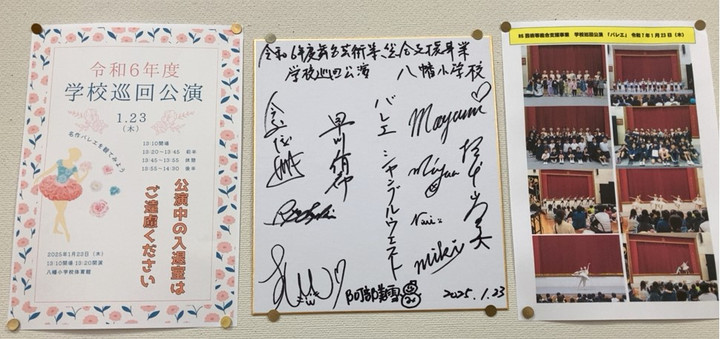 令和6年度
学校巡回公演
1.23
(木)
名作バレエを観てみよう
13:10開場
13:20〜13:45 前半
13:45〜13:55 休憩
13:55〜14:30 後半
公演中の入退室は
ご遠慮ください
2025年1月23日(木)
13:10開場 13:20開演
八幡小学校体育館
令和6年度舞台芸術等総合支援事業
学校巡回公演 八幡小学校
バレエ シャンブルウエスト
Mayumi
miki
2025.1.23
R6 舞台芸術等総合支援事業 学校巡回公演 「バレエ」 令和7年1月23日(木)